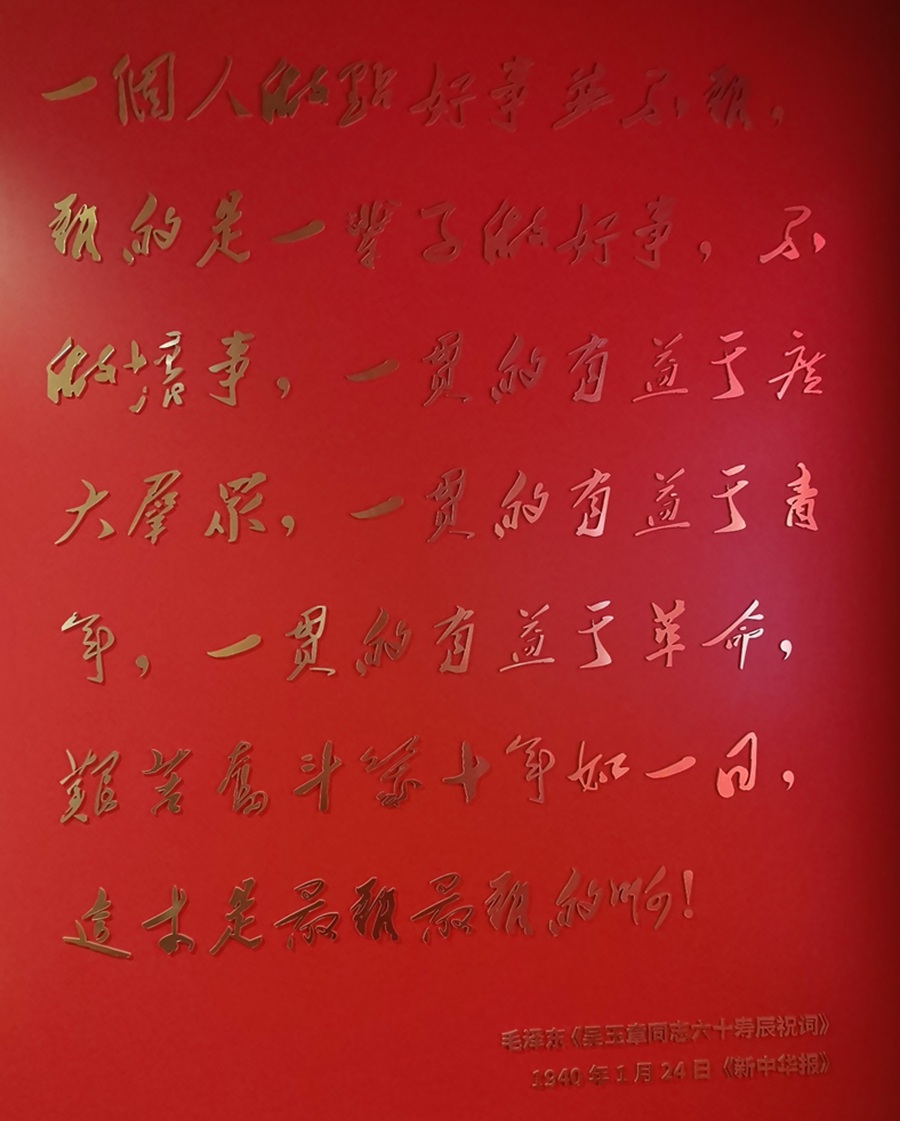 一個人做點好事並不難，
難的是一輩子做好事，不
做壞事，一貫的有益于廣
大羣眾，一貫的有益于青
年，一貫的有益于革命，
艱苦奮斗幾十年如一日，
這才是最難最難的啊！
毛泽东《吴玉章同志六十寿辰祝词》
1940 年 1 月 24 日《新中华报》